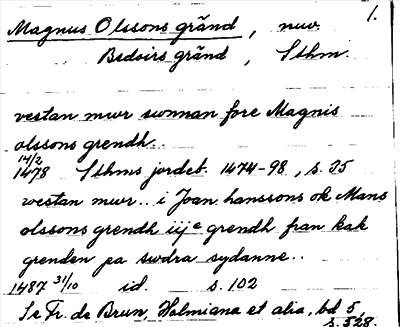 1.
Magnus Olssons gränd, nuv.
Bedoirs gränd, Sthm.
vestan mwr swnnan fore Magnis
olssons grendh..
14/2
1478 Sthms jordeb. 1474-98, s. 35
vestan mwr.. i Joan hanssons ok Mans
olssons grendh iije grendh fran kak
grenden pa swdra sydanne..
1487 31/10 id. s. 102
Se Fr. de Brun, Holmiana et alia, bd 5,
s. 528.